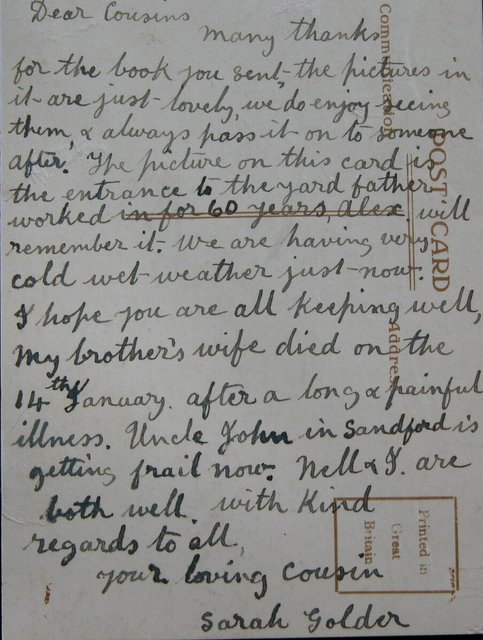 Dear Cousins
many thanks
for the book you sent, the pictures in
it are just lovely, we do enjoy seeing
them, & always pass it on to someone
after. The picture on this card is
the entrance to the yard father
worked in for 60 years, Alex. will
remember it. We are having very
cold wet weather just now.
I hope you are all keeping well,
My brother's wife died on the
14th January. after a long & painful
illness. Uncle John in Sandford is
getting frail now. Nell & I. are
both well. with kind
regards to all,
your loving Cousin
Sarah Golder
Communication
POST CARD
Address
Printed in
Great
Britain